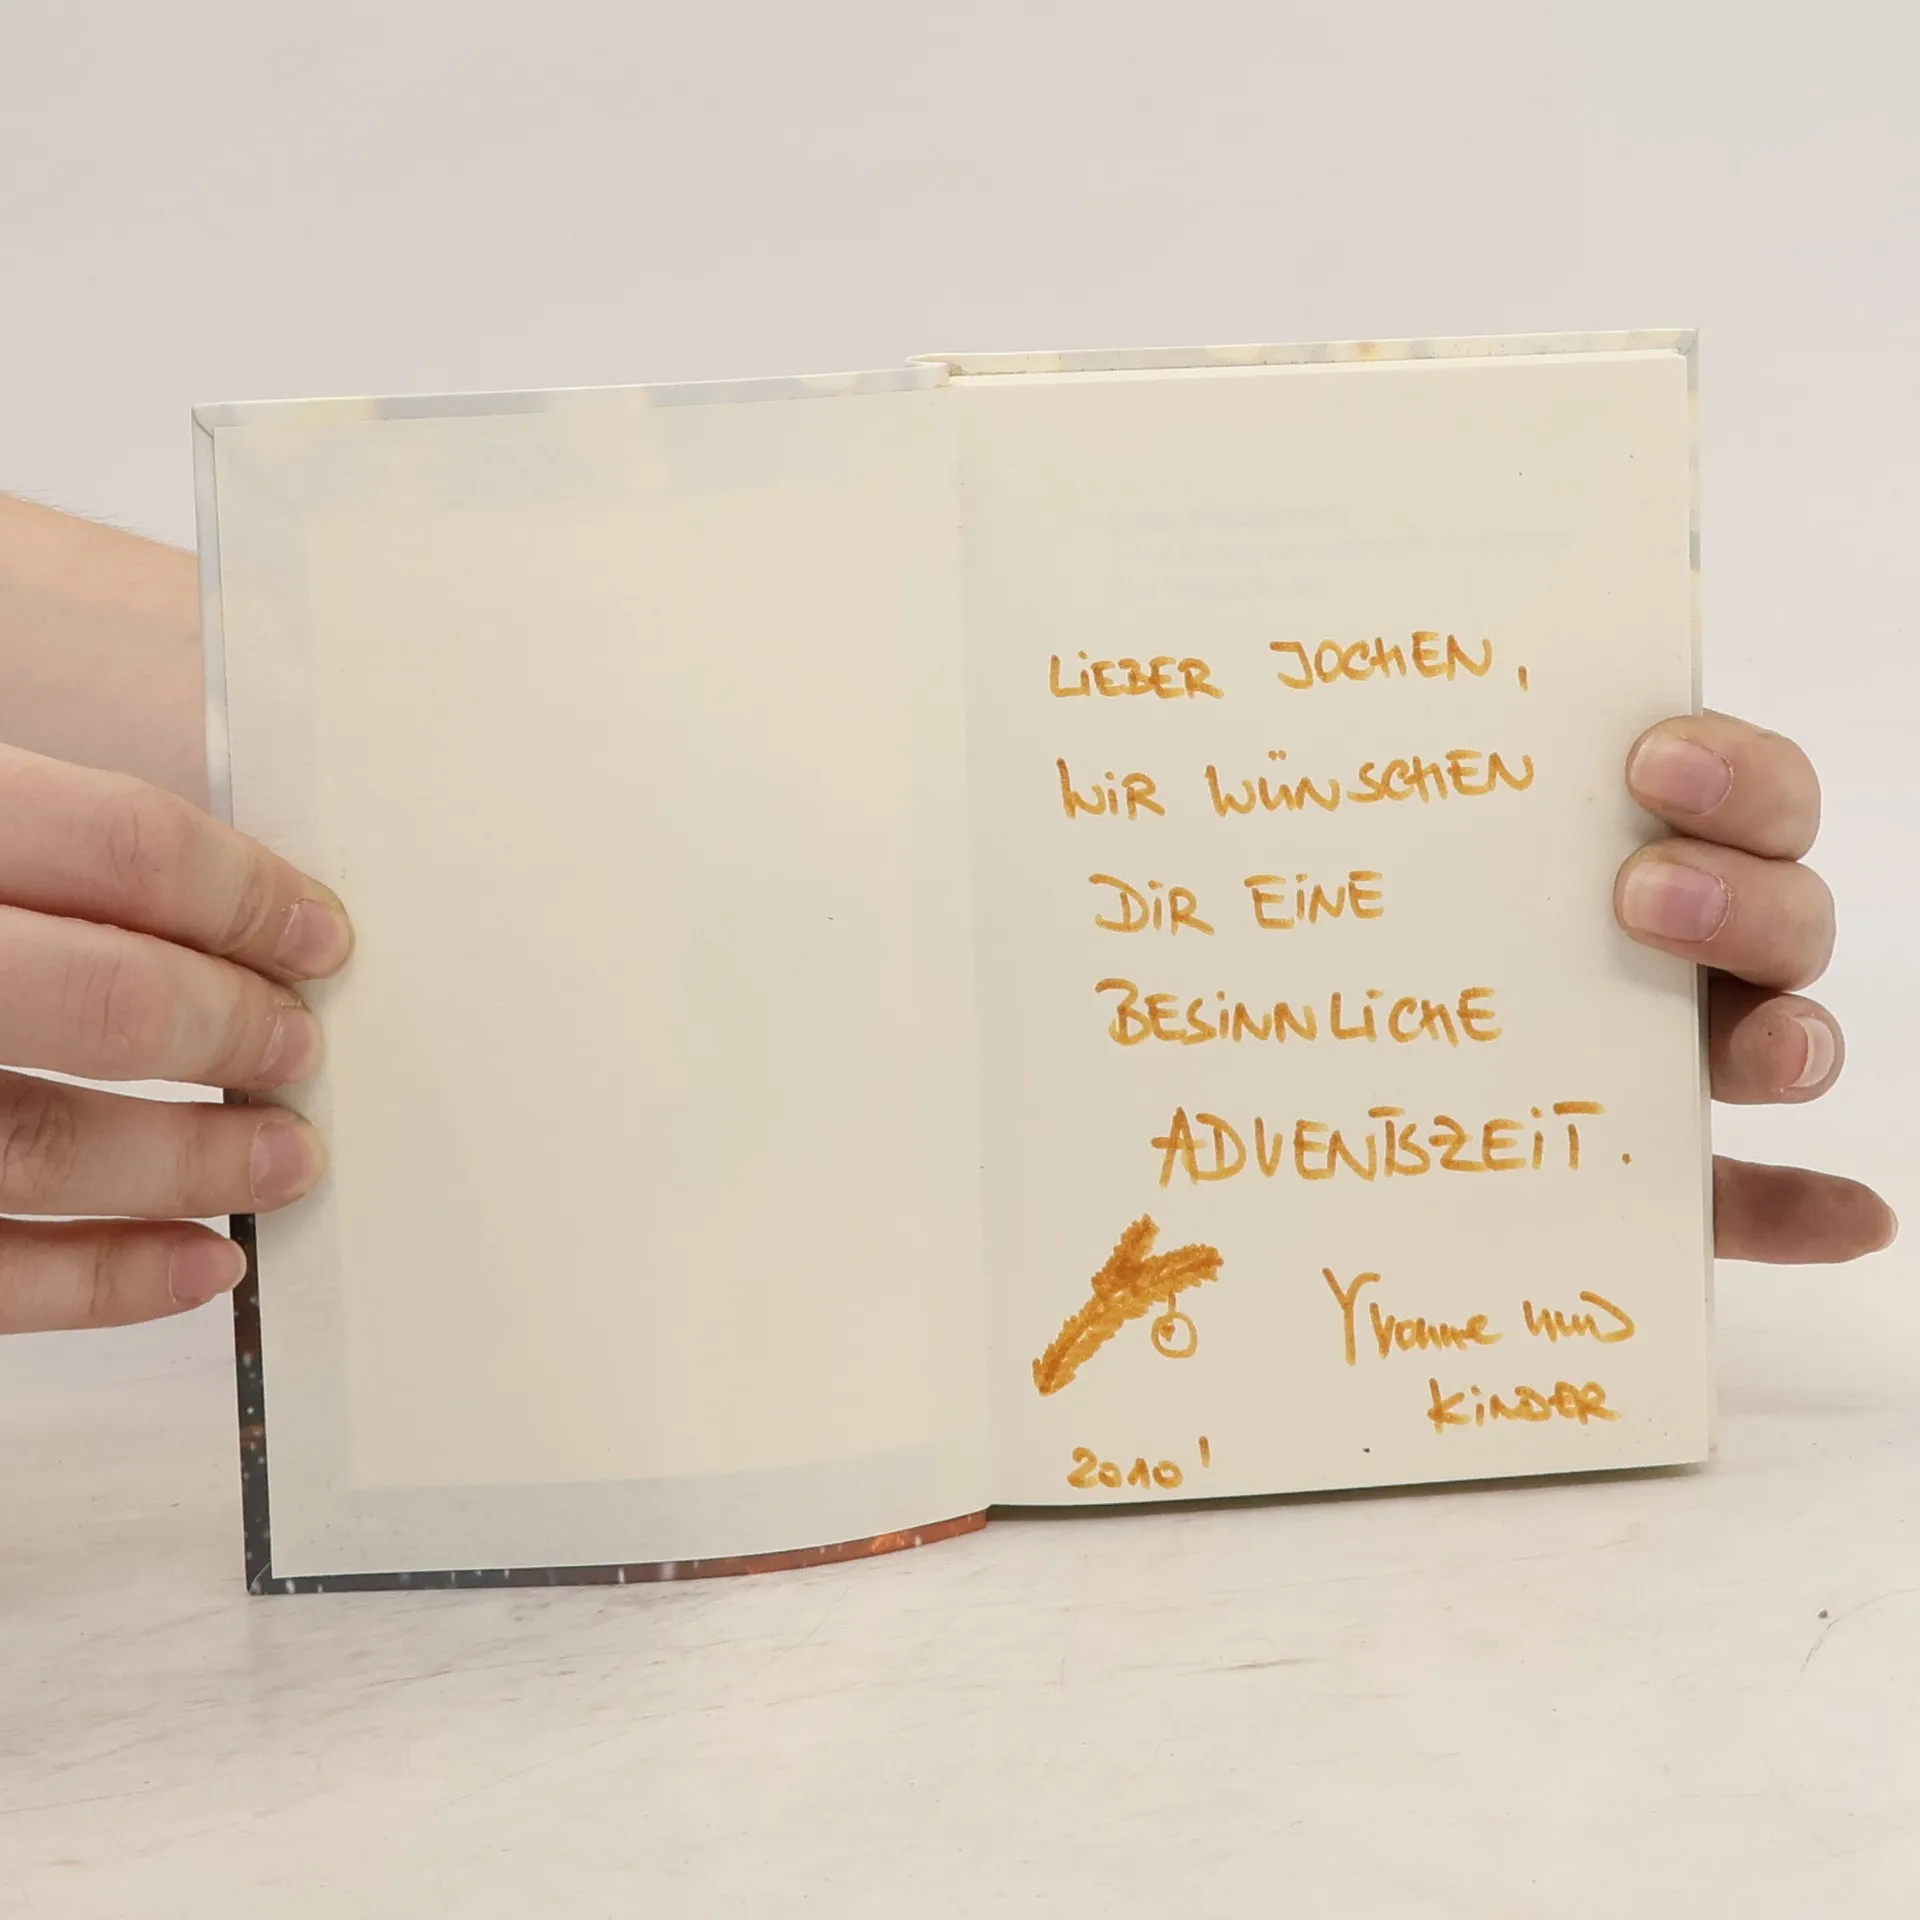 LiEBER JOCHEN,
WiR WÜNSCHEN
DiR EiNE
BESiNNLiCHE
ADVENTSZEiT.
Yvonne und
KiNDER
2010'